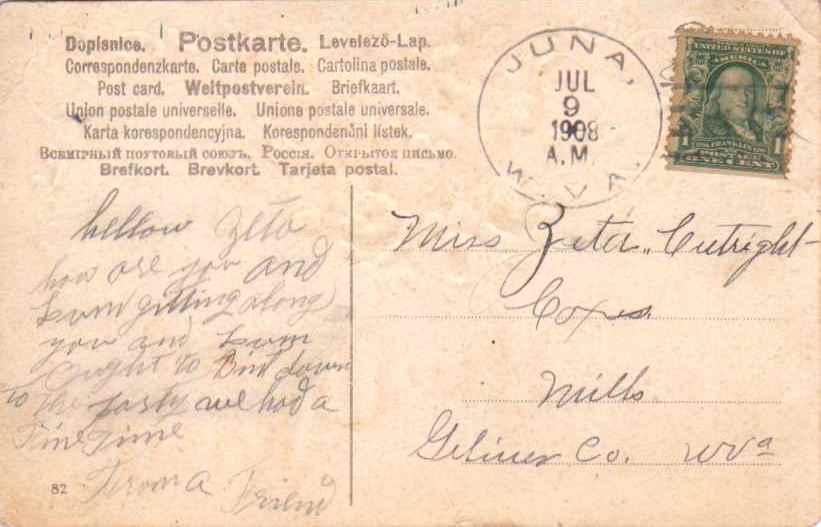 Dopisnice. Postkarte. Levelező-Lap.
Correspondenzkarte. Carte postale. Cartolina postale.
Post card. Weltpostverein. Briefkaart.
Union postale universelle. Unione postale universale.
Karta korespondencyjna. Korespondenční lístek.
Всемірный почтовый союзъ. Россія. Открытое письмо.
Brefkort. Brevkort. Tarjeta postal.
JUNA,
JUL
9
1908
A.M.
W. VA.
UNITED STATES OF
AMERICA
1 1
POSTAGE
ONE CENT
hellow Zeta
how are you and
gitting along
you and
ought to Bin down
to the party we had a
Fine Time
From a Friend
82
Miss Zeta Cutright
Coxes
Mills
Gilmer Co. WVa